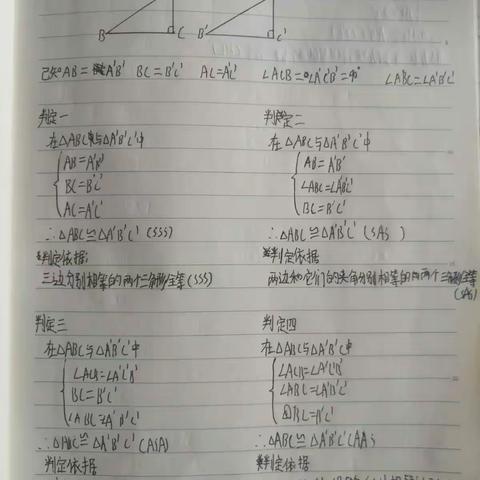 B C B' C'
已知 AB=A'B' BC=B'C' AC=A'C' ∠ACB=∠A'C'B'=90° ∠ABC=∠A'B'C'
判定一
在△ABC与△A'B'C'中
AB=A'B'
BC=B'C'
AC=A'C'
∴△ABC≌△A'B'C'(SSS)
判定依据:
三边分别相等的两个三角形全等(SSS)
判定二
在△ABC与△A'B'C'中
AB=A'B'
∠ABC=∠A'B'C'
BC=B'C'
∴△ABC≌△A'B'C'(SAS)
判定依据
两边和它们的夹角分别相等的两个三角形全等
(SAS)
判定三
在△ABC与△A'B'C'中
∠ACB=∠A'C'B'
BC=B'C'
∠ABC=∠A'B'C'
∴△ABC≌△A'B'C'(ASA)
判定依据
判定四
在△ABC与△A'B'C'中
∠ACB=∠A'C'B'
∠ABC=∠A'B'C'
BC=B'C'
∴△ABC≌△A'B'C'(AAS
判定依据